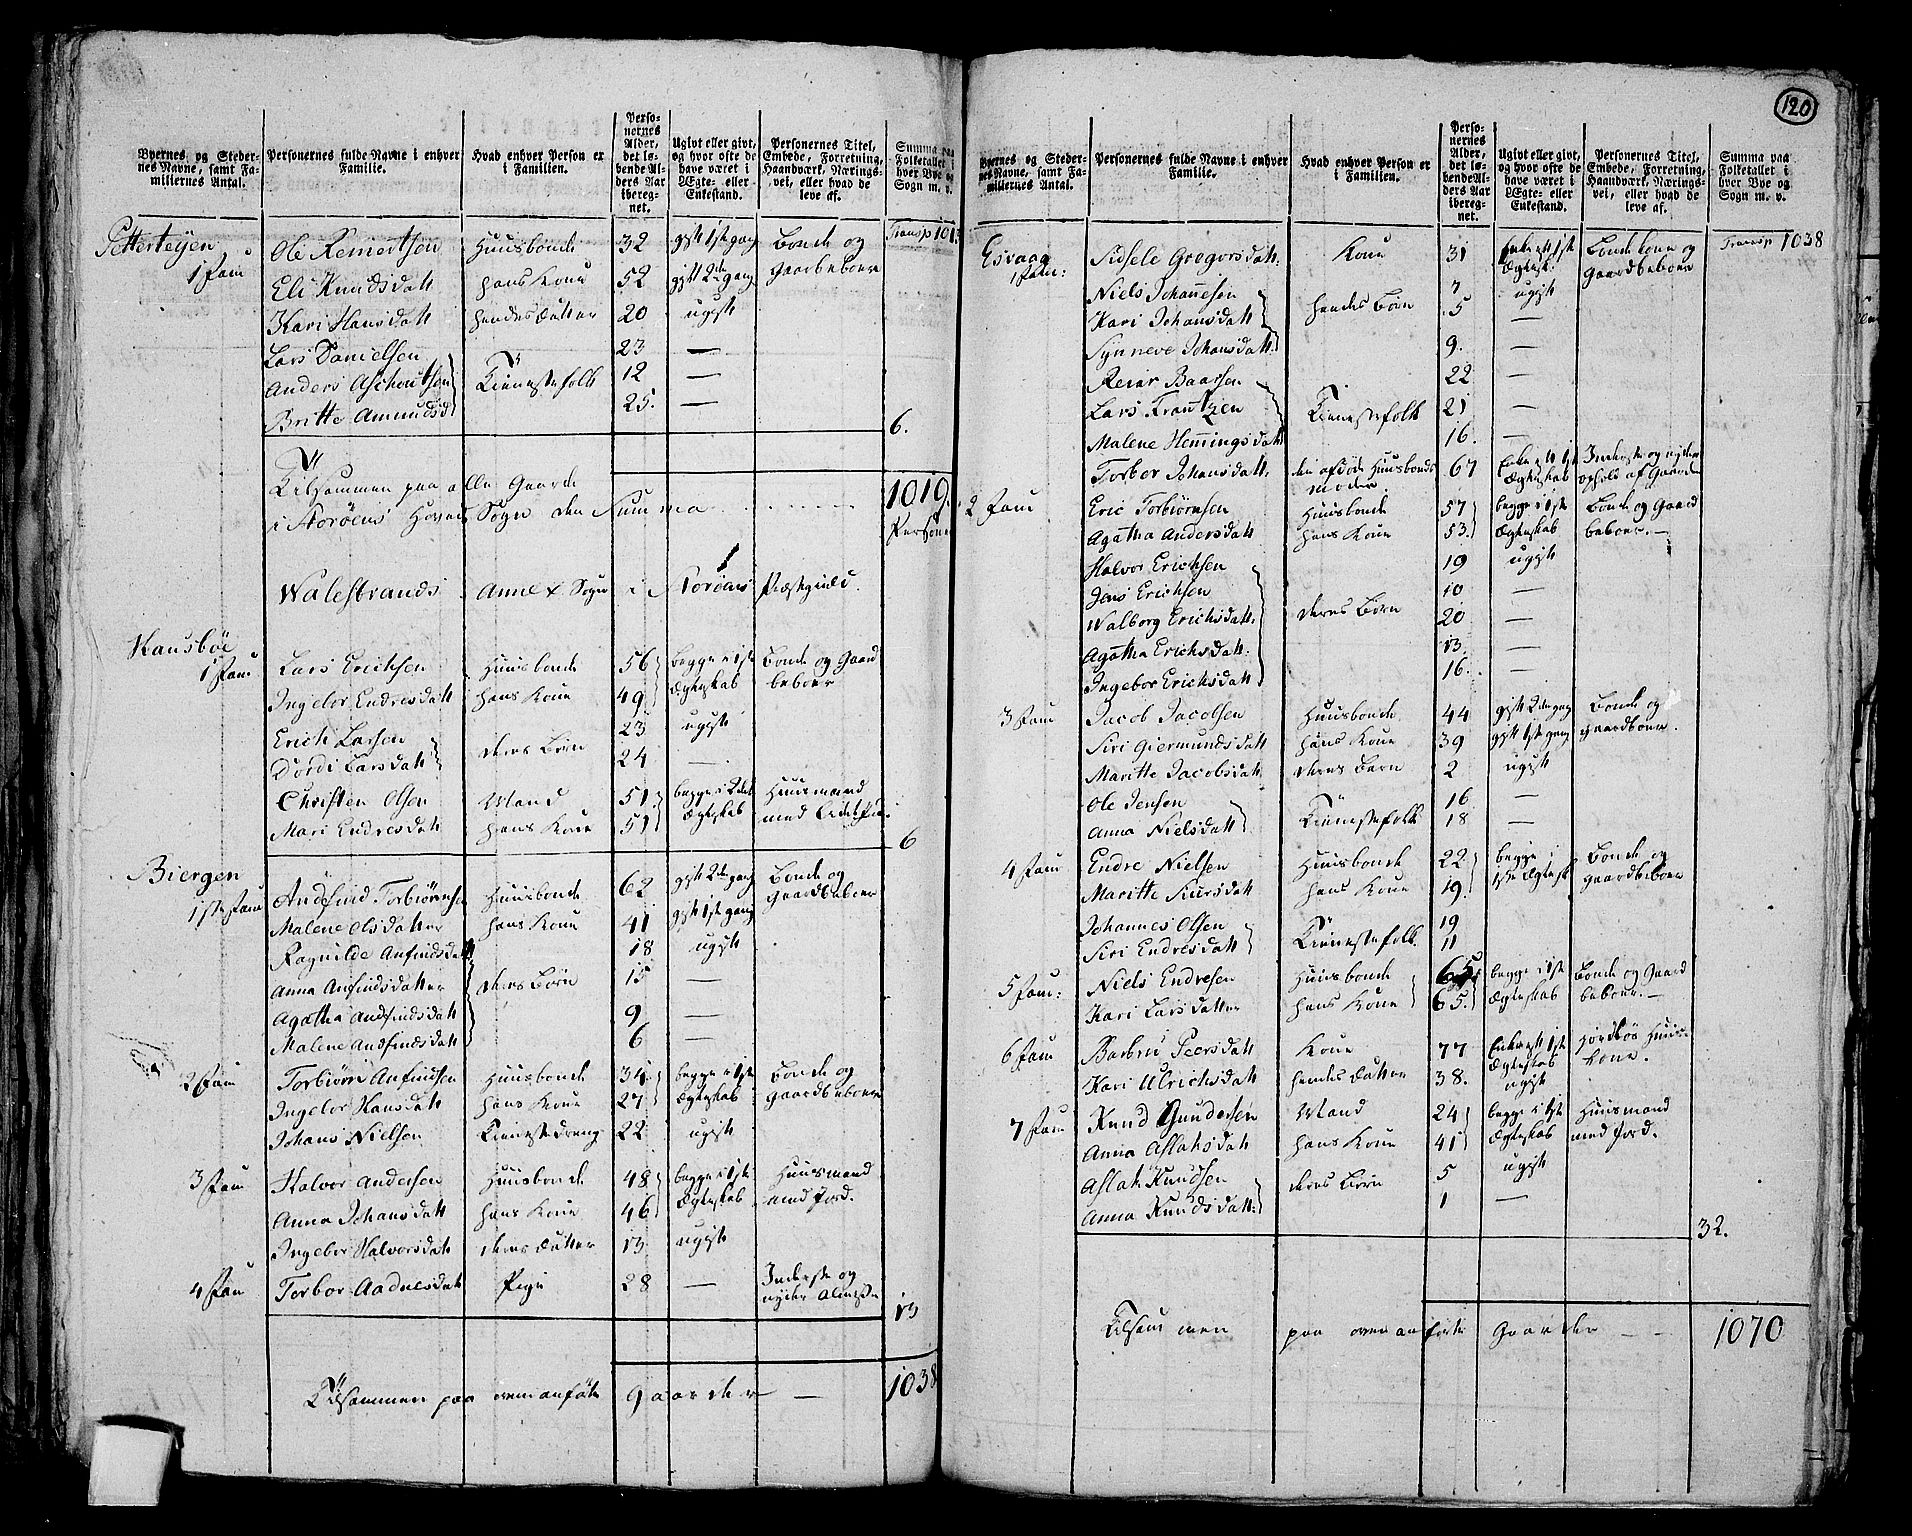 120
Byernes og Steder-
nes Navne, samt Fa-
miliernes Antal.
Personernes fulde Navne i enhver
Familie.
Hvad enhver Person er
i Familien.
Perso-
nernes
Alder,
det lø-
bende Al-
ders Aar
iberegnet.
Ugivt eller givt,
og hvor ofte de
have været i
Ægte- eller
Enkestand.
Personernes Titel,
Embede, Forretning,
Haandværk, Nærings-
vei, eller hvad de
leve af.
Summa paa
Folketallet i
hver Bye og
Sogn m. v.
Transp 101
Petterteijen
1 Fam Ole Reinertsen Huusbonde 32 gift 1ste gang Bonde og
Eli Knudsdatt hans Kone 52 gift 2de gang Gaardbeboer
Kari Hansdatt hendes Datter 20 ugift
Lars Danielsen 23 —
Anders Aschoutsen Tienestefolk 12 —
Britte Amundsd 25. — 6.
Tilsammen paa alle Gaarde
i Storøens Hoved Sogn den Summa 1019.
Persone
Walestrands Annex Sogn i Storøens Præstegield.
Hausbøe
1 Fam Lars Erichsen Huusbonde 56 begge i 1ste Bonde og Gaard
Ingebor Endresdatt hans Kone 49 Ægteskab beboer
Erich Larsen 23 ugift
Dordi Larsdatt deres Børn 24 —
Christen Olsen Mand 51 begge i 2det Huusmand
Mari Endresdatt hans Kone 51 Ægteskab med liden
6
Biergen
1ste Fam Andfind Torbiørnsen Huusbonde 62 gift 2de gang Bonde og
Malene Olsdatter hans Kone 41 gift 1ste gang Gaardbeboer
Ragnilde Anfindsdatt 18 ugift
Anna Anfindsdatter deres Børn 15 —
Agatha Andfindsdatt 9 —
Malene Andfindsdatt 6 —
2 Fam Torbiørn Anfindsen Huusbonde 34 begge i 1ste Bonde og
Ingebor Hansdatt hans Kone 27 Ægteskab Gaardbeboer
Johans Nielsen Tienestedreng 22 ugift
3 Fam Halvor Andersen Huusbonde 48 begge i 1ste Huusmand
Anna Johansdatt hans Kone 46 Ægteskab med Jord.
Ingebor Halvorsdatt deres Datter 13 ugift
4 Fam Torbor Aadnesdatt Pige 28 — Inderste og
nyder Almisse
13
Tilsammen paa ovenanførte Gaarder — 1038
Byernes og Steder-
nes Navne, samt Fa-
miliernes Antal.
Personernes fulde Navne i enhver
Familie.
Hvad enhver Person er
i Familien.
Perso-
nernes
Alder,
det lø-
bende Al-
ders Aar
iberegnet.
Ugivt eller givt,
og hvor ofte de
have været i
Ægte- eller
Enkestand.
Personernes Titel,
Embede, Forretning,
Haandværk, Nærings-
vei, eller hvad de
leve af.
Summa paa
Folketallet i
hver Bye og
Sogn m. v.
Transp 1038
Esvaag
1 Fam: Sidsele Gregorsdatt: Kone 31 Enke efter 1ste Bondekone og
Ægtesk: Gaardbeboer
Niels Johannesen 7 ugift
Kari Johansdatt hendes Børn 5 —
Synneve Johansdatt: 9. —
Reier Baarsen 22 —
Lars Frantzen Tienestefolk 21 —
Malene Hemmingsdatt 16. —
Torbor Johansdatt: den afdøde Huusbonds 67 Enke efter 1ste Inderste og nyder
moder Ægteskab ophold af Gaarden
2 Fam Eric Torbiørnsen Huusbonde 57 begge i 1ste Bonde og Gaard
Agatha Andersdatt hans Kone 53. Ægteskab beboer. —
Halvor Erichsen 19 ugift
Jens Erichsen 10 —
Walborg Erichsdatt: deres Børn 20 —
Agatha Erichsdatt: 13 —
Ingebor Erichsdatt 16. —
3 Fam Jacob Jacobsen Huusbonde 44 gift 2de gang Bonde og
Siri Giermundsdatt hans Kone 39 gift 1ste gang Gaardboer.
Maritte Jacobsdatt deres Barn 2 ugift
Ole Jensen 16 —
Anna Nielsdatt Tienestefolk 18 —
4 Fam Endre Nielsen Huusbonde 22 begge i Bonde og
Maritte Siursdatt hans Kone 19. 1ste Ægtesk Gaardbeboer
Johannes Olsen 19
Siri Endresdatt Tienestefolk 11
5 Fam: Niels Endresen Huusbonde 65. begge i 1ste Bonde og Gaard
Kari Larsdatter hans Kone 65. Ægteskab beboer. —
6 Fam Barbru Peersdatt Kone 77 Enke efter 1ste Jordløs Huus
Ægteskab kone.
Kari Ulrichsdatt hendes Datter 38. ugift
7 Fam Knud Gundersen Mand 24 begge i 1ste Huusmand
Anna Aslaksdatt hans Kone 41 Ægteskab med Jord.
Aslak Knudsen deres Børn 5 ugift
Anna Knudsdatt: 1 —
32.
Tilsammen paa ovenanførte Gaarder — — 1070